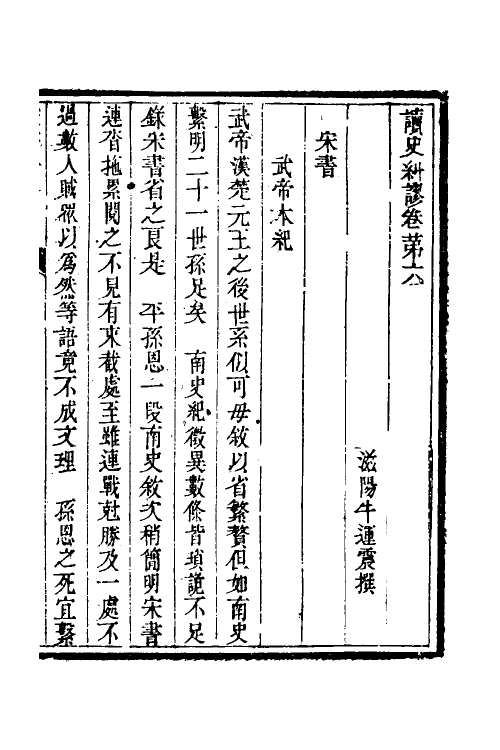 讀史糾謬卷第六
滋陽牛運震撰
宋書
武帝本紀
武帝漢楚元王之後世系似可毋敘以省繁贅但如南史
繫明二十一世孫足矣　南史紀徵異數條皆瑣詭不足
錄宋書省之良是　平孫恩一段南史敘次稍簡明宋書
連沓拖累閱之不見有束截處至雖連戰尅勝及一處不
過數人職推以爲然等語竟不成文理　孫恩之死宜繫